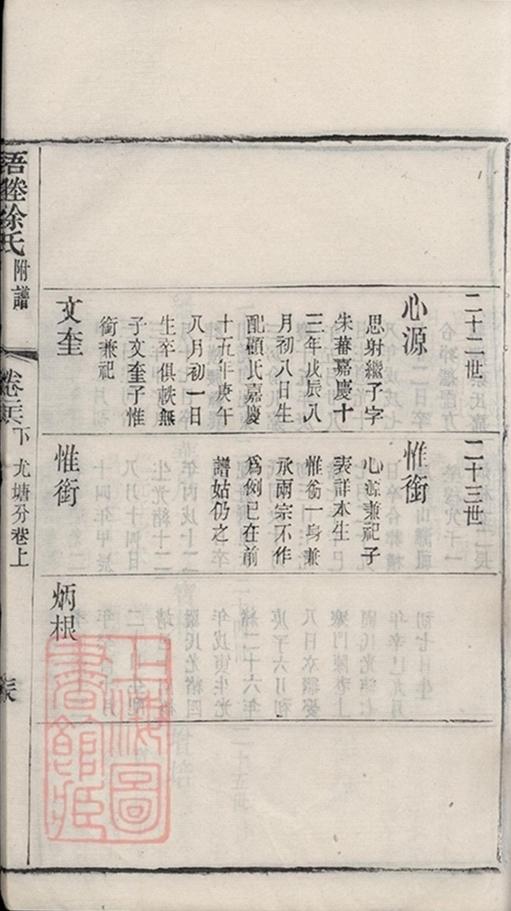 二十二世
心源
思射繼子字
朱蕃嘉慶十
三年戊辰八
月初八日生
配顧氏嘉慶
十五年庚午
八月初一日
生卒俱軼無
子文奎子惟
銜兼祀
文奎
二十三世
惟銜
心源兼祀子
表詳本生
惟銜一身兼
承兩宗不作
爲例已在前
譜姑仍之
惟銜
炳根
梧塍徐氏
附譜
卷
下
尤塘分巷上
上海圖
書館藏